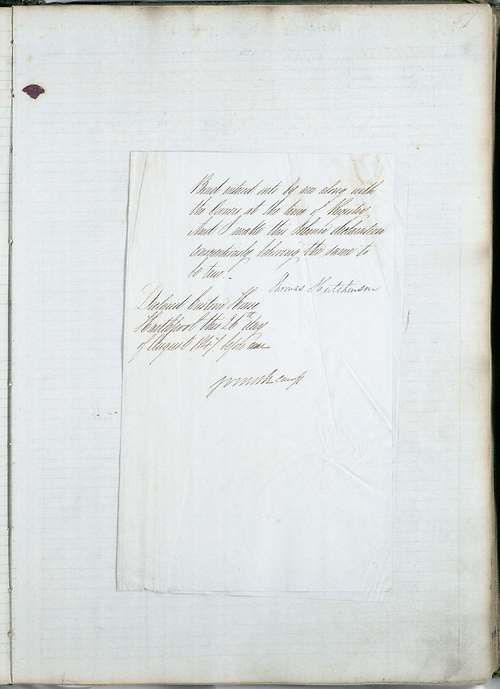 Bond entered into by me along with
the Owners at the time of Registry
And I make this Solemn declaration
conscientiously believing the same to
be true -
Thomas Hutchinson
Declared Custom House
Hartlepool this 26th day
of August 1847 before me